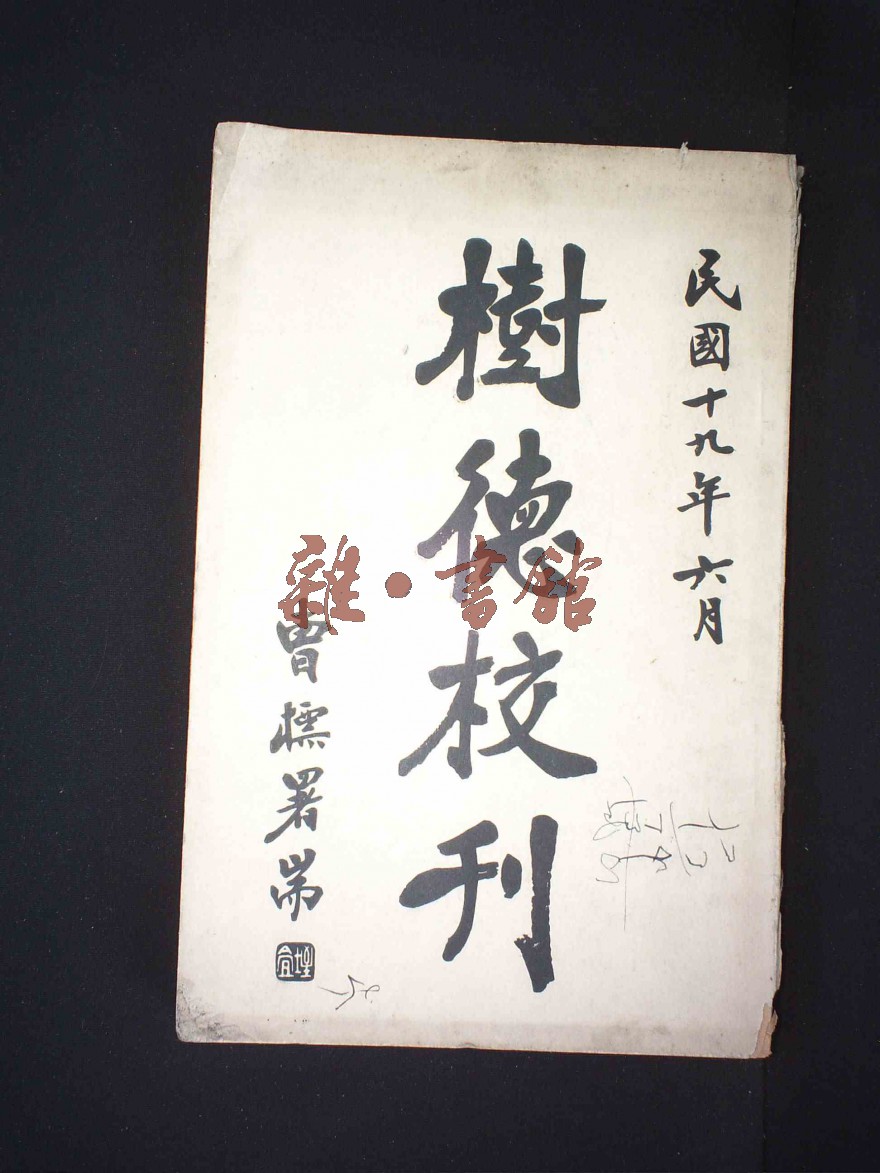 民國十九年六月
樹德校刊
曾標署耑
雜·書館